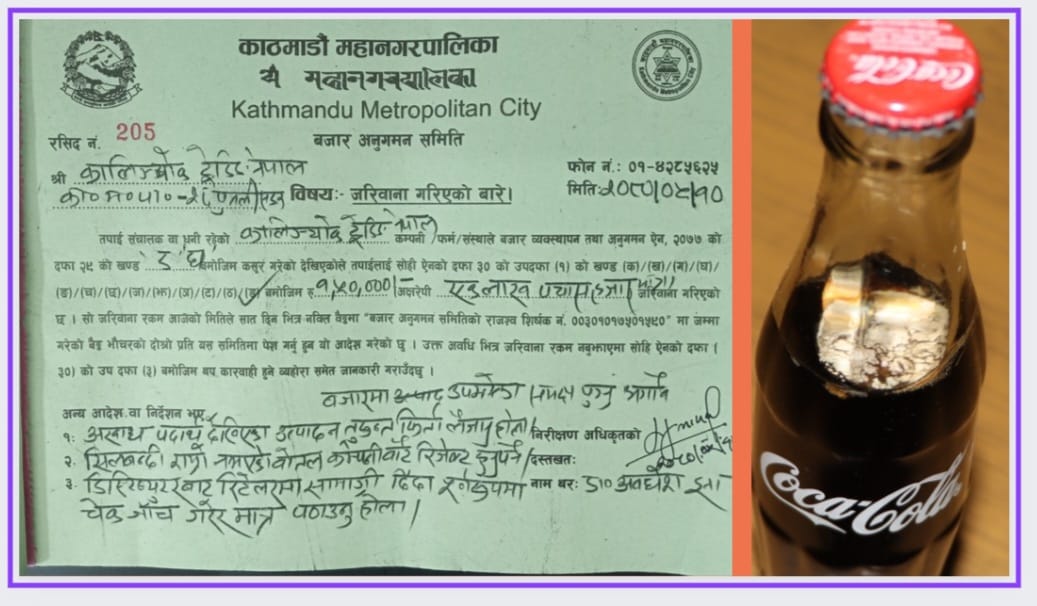 काठमाडौं महानगरपालिका
Kathmandu Metropolitan City
बजार अनुगमन समिति
रसिद नं. 205
फोन नं.: ०१-४२८५६२५
श्री
मिति:
का०म०पा० विषय:- जरिवाना गरिएको बारे।
तपाई संचालक वा धनी रहेको कम्पनी /फर्म/संस्थाले बजार व्यवस्थापन तथा अनुगमन ऐन, २०७७ को
दफा २९ को खण्ड बमोजिम कसुर गरेको देखिएकोले तपाईलाई सोही ऐनको दफा ३० को उपदफा (१) को खण्ड (क)/(ख)/(ग)/(घ)/
(ङ)/(च)/(छ)/(ज)/(झ)/(ञ)/(ट)/(ठ)/(ड) बमोजिम रु १,५०,०००/ अक्षरेपी एक लाख पचास हजार मात्र। जरिवाना गरिएको
छ । सो जरिवाना रकम आजको मितिले सात दिन भित्र नबिल बैङ्कमा "बजार अनुगमन समितिको राजश्व शिर्षक नं. ००३०१०१७५०१५८०" मा जम्मा
गरेको बैङ्क भौचरको दोस्रो प्रति यस समितिमा पेश गर्नु हुन यो आदेश गरेको छु । उक्त अवधि भित्र जरिवाना रकम नबुझाएमा सोहि ऐनको दफा (
३०) को उप दफा (३) बमोजिम थप कारवाही हुने व्यहोरा समेत जानकारी गराउँदछु ।
बजारमा उपभोक्ता समक्ष पुग्नु अगावै
अन्य आदेश वा निर्देशन भए
१. अखाद्य पदार्थ देखिएका उत्पादन तुरुन्त फिर्ता लैजानु होला। निरीक्षण अधिकृतको
२. सिलबन्दी राम्रो नभएको बोतल कम्पनीबाट रिजेक्ट हुनुपर्ने। दस्तखतः
३. डिस्ट्रिब्युटरबाट रिटेलरमा सामाग्री दिँदा नाम थरः डा० अवधेश झा
चेक जाँच गरेर मात्र पठाउनु होला।
Coca-Cola
Coca-Cola